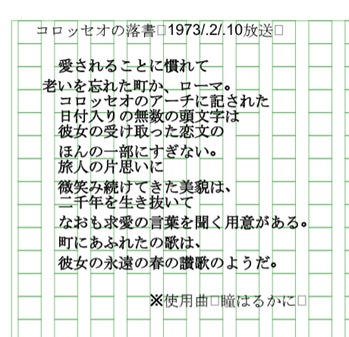 コロッセオの落書□1973/.2/.10放送□
愛されることに慣れて
老いを忘れた町か、ローマ。
コロッセオのアーチに記された
日付入りの無数の頭文字は
彼女の受け取った恋文の
ほんの一部にすぎない。
旅人の片思いに
微笑み続けてきた美貌は、
二千年を生き抜いて
なおも求愛の言葉を聞く用意がある。
町にあふれたの歌は、
彼女の永遠の春の讃歌のようだ。
※使用曲□瞳はるかに□